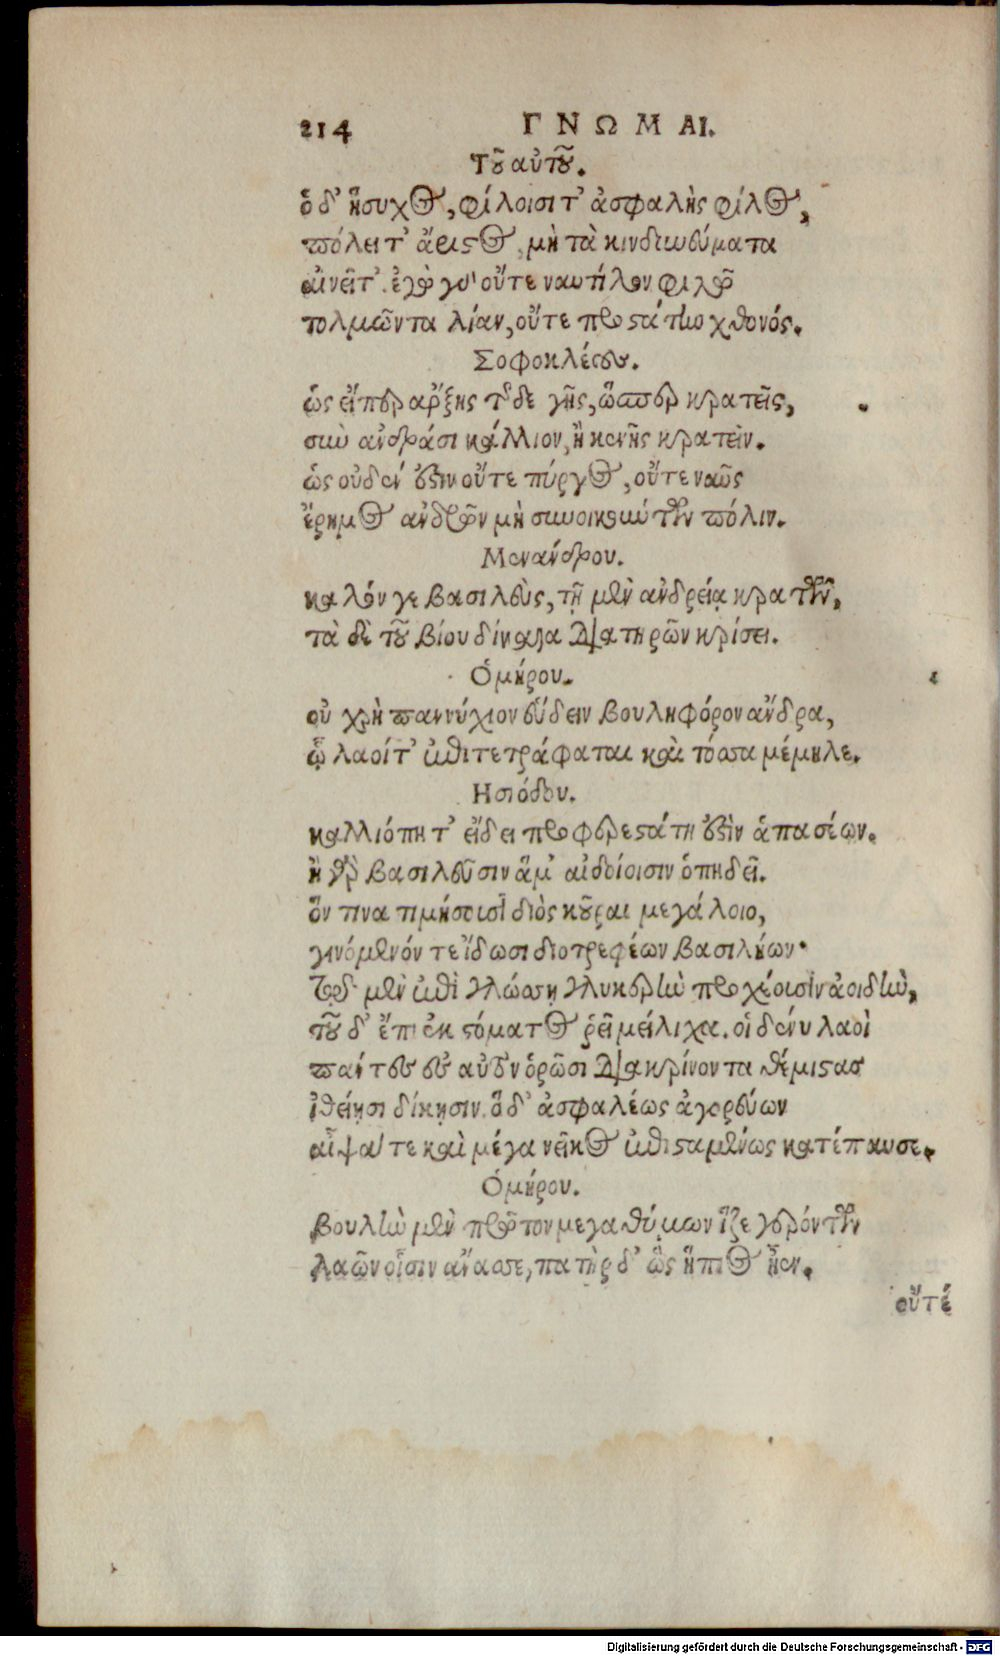 214 ΓΝΩΜΑΙ.
Τοῦ αὐτοῦ.
ὁ δ' ἥσυχος, φίλοισι τ' ἀσφαλὴς φίλος,
πόλει τ' ἄριστος, μὴ τὰ κινδυνεύματα
αἰνεῖτ'. ἐγὼ γὰρ οὔτε ναυτίλον φιλῶ
τολμῶντα λίαν, οὔτε προστάτην χθονός.
Σοφοκλέους.
ὡς εἴπερ ἄρξῃς τῆσδε γῆς, ὥσπερ κρατεῖς,
σὺν ἀνδράσι κάλλιον, ἢ κενῆς κρατεῖν.
ὡς οὐδέν ἐστιν οὔτε πύργος, οὔτε ναῦς
ἔρημος ἀνδρῶν μὴ συνοικούντων πόλιν.
Μενάνδρου.
καλόν γε βασιλεὺς, τῇ μὲν ἀνδρείᾳ κρατῶν,
τὰ δὲ τοῦ βίου δίκαια διατηρῶν κρίσει.
Ὁμήρου.
οὐ χρὴ παννύχιον εὕδειν βουληφόρον ἄνδρα,
ᾧ λαοί τ' ἐπιτετράφαται καὶ τόσσα μέμηλε.
Ησιόδου.
καλλιόπη τ' εἴδει προφερεστάτη ἐστὶν ἁπασέων.
ἣ γὰρ βασιλεῦσιν ἅμ' αἰδοίοισιν ὀπηδεῖ.
ὅν τινα τιμήσουσι διὸς κοῦραι μεγάλοιο,
γινόμενόν τε ἴδωσι διοτρεφέων βασιλήων·
τῷ μὲν ἐπὶ γλώσσῃ γλυκερὴν προχέουσιν ἀοιδὴν,
τοῦ δ' ἔπε' ἐκ στόματος ῥεῖ μείλιχα. οἱ δένυ λαοὶ
πάντες ἐς αὐτὸν ὁρῶσι διακρίνοντα θέμιστας
ἰθείῃσι δίκῃσιν. ὁ δ' ἀσφαλέως ἀγορεύων
αἶψά τε καὶ μέγα νεῖκος ἐπισταμένως κατέπαυσε.
Ὁμήρου.
βουλὴν μὲν πρῶτον μεγαθύμων ἷζε γερόντων
λαῶν οἷσιν ἄνασσε, πατὴρ δ' ὣς ἤπιος ἦεν.
οὔτέ
Digitalisierung gefördert durch die Deutsche Forschungsgemeinschaft - DFG